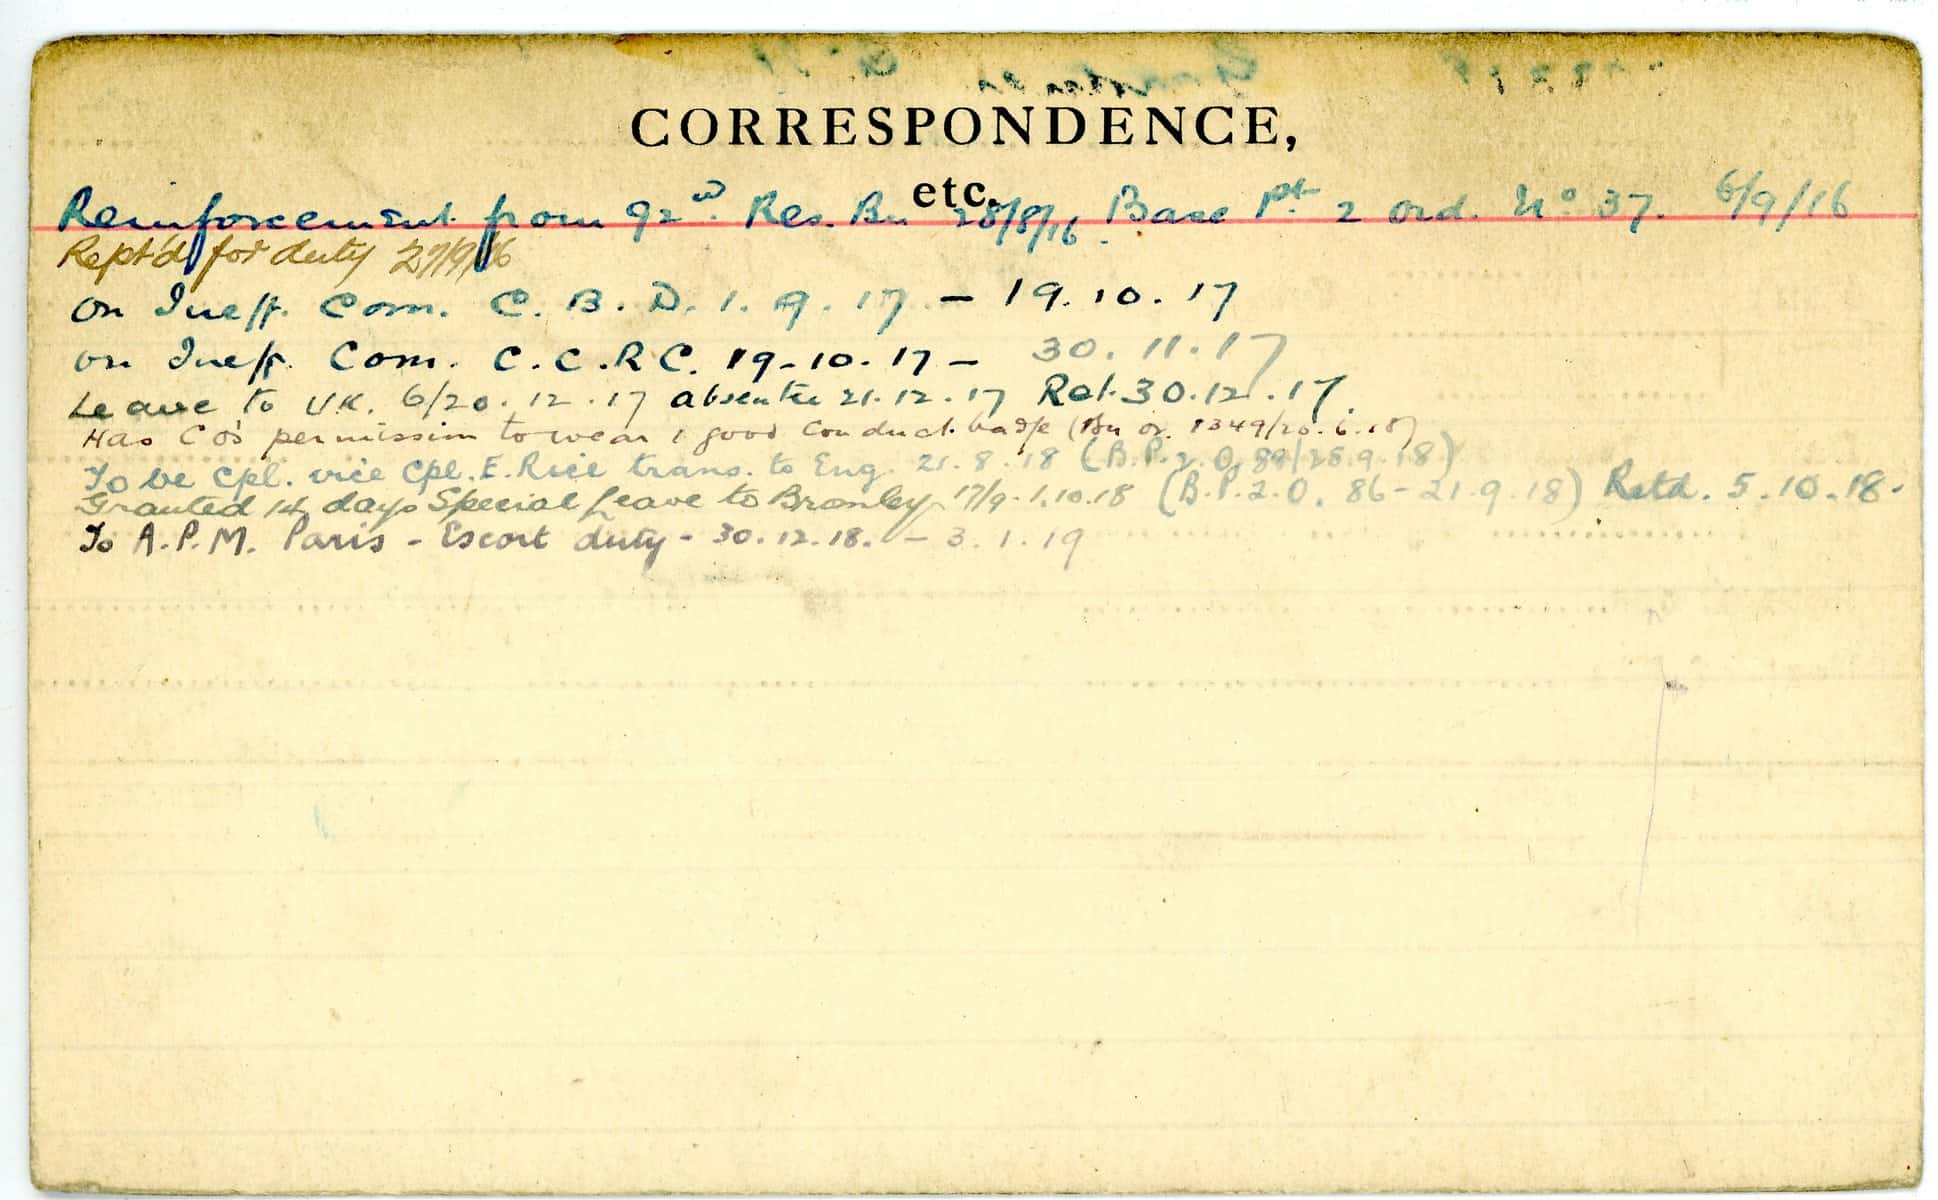 CORRESPONDENCE,
etc.
Reinforcement from 92nd Res. Bn 28/8/16. Base Pt 2 ord. No 37. 6/9/16
Rept'd for duty 27/9/16
on Ineff. Com. C. B. D. 1. 9. 17 – 19. 10. 17
on Ineff. Com. C. C. R C. 19–10. 17 – 30. 11. 17
Leave to U.K. 6/20. 12. 17 absentee 21. 12. 17 Ret. 30. 12. 17.
Has CO's permission to wear 1 good conduct badge (Bn or. 1349/20. 6. 18)
To be Cpl. vice Cpl. E. Rice trans. to Eng. 21. 8. 18 (B.P. 2. O. 88/25.9.18)
Granted 14 days Special Leave to Bromley 17/9–1.10.18 (B.P. 2. O. 86–21.9.18) Retd. 5. 10. 18.
To A.P.M. Paris – Escort duty – 30. 12. 18. – 3. 1. 19